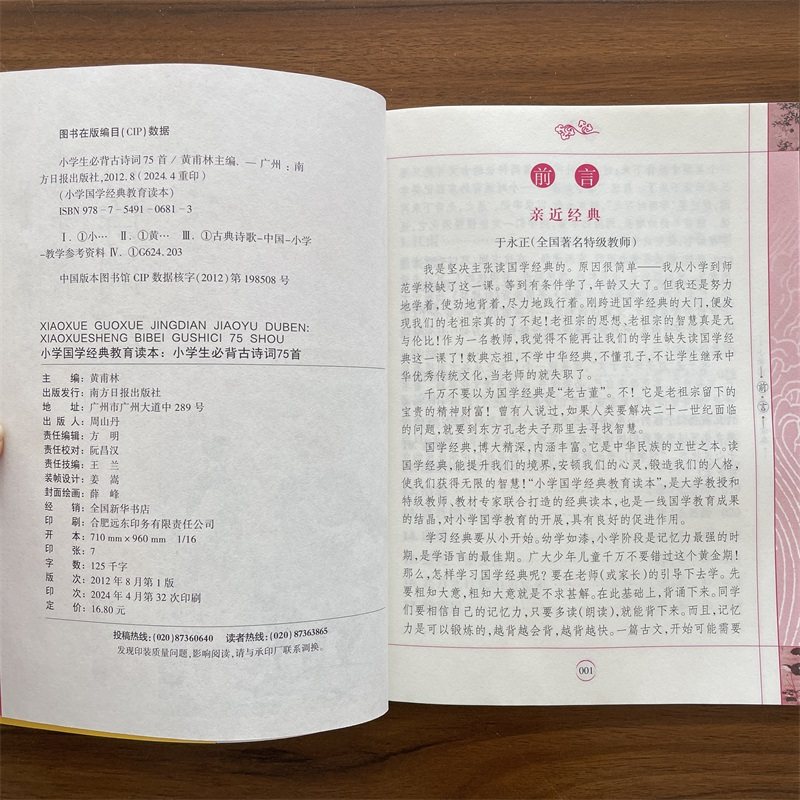 图书在版编目(CIP)数据
小学生必背古诗词75首/黄甫林主编.—广州:南
方日报出版社,2012.8(2024.4重印)
(小学国学经典教育读本)
ISBN 978-7-5491-0681-3
Ⅰ.①小… Ⅱ.①黄… Ⅲ.①古典诗歌-中国-小学
-教学参考资料 Ⅳ.①G624.203
中国版本图书馆CIP数据核字(2012)第198508号
XIAOXUE GUOXUE JINGDIAN JIAOYU DUBEN:
XIAOXUESHENG BIBEI GUSHICI 75 SHOU
小学国学经典教育读本:小学生必背古诗词75首
主 编:黄甫林
出版发行:南方日报出版社
地 址:广州市广州大道中289号
出 版 人:周山丹
责任编辑:方 明
责任校对:阮昌汉
责任技编:王 兰
装帧设计:姜 嵩
封面绘画:薛 峰
经 销:全国新华书店
印 刷:合肥远东印务有限责任公司
开 本:710mm×960mm 1/16
印 张:7
字 数:125千字
版 次:2012年8月第1版
印 次:2024年4月第32次印刷
定 价:16.80元
投稿热线:(020)87360640 读者热线:(020)87363865
发现印装质量问题,影响阅读,请与承印厂联系调换。
前言
亲近经典
于永正(全国著名特级教师)
我是坚决主张读国学经典的。原因很简单——我从小学到师
范学校缺了这一课。等到有条件学了,年龄又大了。但我还是努力
地学着、使劲地背着、尽力地践行着。刚跨进国学经典的大门,便发
现我们的老祖宗真的了不起!老祖宗的思想、老祖宗的智慧真是无
与伦比!作为一名教师,我觉得不能再让我们的学生缺失读国学经
典这一课了!数典忘祖,不学中华经典,不懂孔子,不让学生继承中
华优秀传统文化,当老师的就失职了。
千万不要以为国学经典是“老古董”。不!它是老祖宗留下的
宝贵的精神财富!曾有人说过,如果人类要解决二十一世纪面临
的问题,就要到东方孔老夫子那里去寻找智慧。
国学经典,博大精深,内涵丰富。它是中华民族的立世之本。读
国学经典,能提升我们的境界,安顿我们的心灵,锻造我们的人格,
使我们获得无限的智慧!“小学国学经典教育读本”,是大学教授和
特级教师、教材专家联合打造的经典读本,也是一线国学教育成果
的结晶,对小学国学教育的开展,具有良好的促进作用。
学习经典要从小开始。幼学如漆,小学阶段是记忆力最强的时
期,是学语言的最佳期。广大少年儿童千万不要错过这个黄金期!
那么,怎样学习国学经典呢?要在老师(或家长)的引导下去学。先
要粗知大意,粗知大意就是不求甚解。在此基础上,背诵下来。同学
们要相信自己的记忆力,只要多读(朗读),就能背下来。而且,记忆
力是可以锻炼的,越背越会背,越背越快。一篇古文,开始可能需要
前·言
001